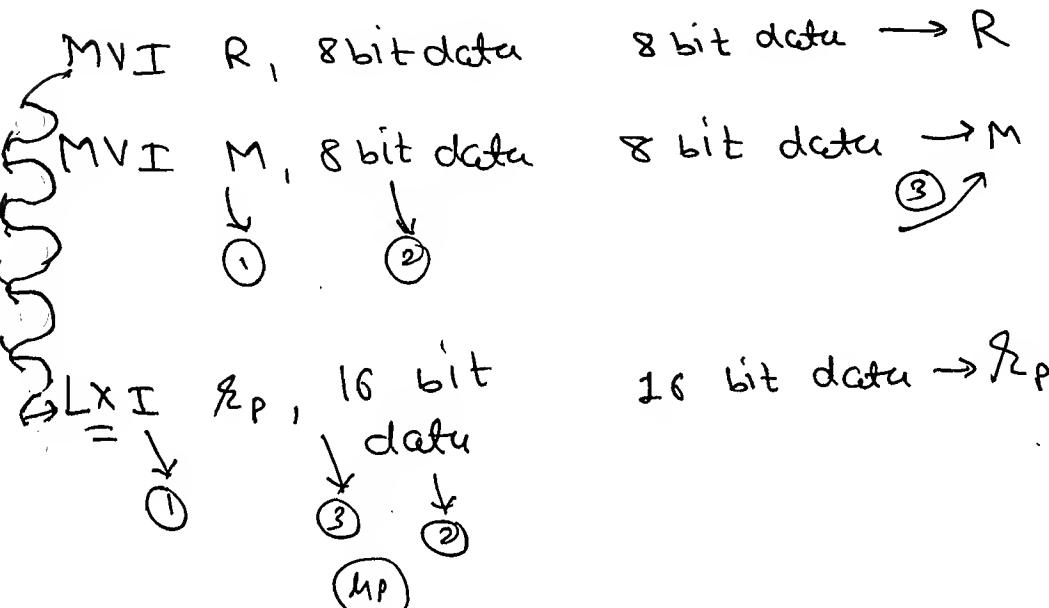 MVI R, 8 bit data 8 bit data → R
MVI M, 8 bit data 8 bit data → M
① ② ③
LXI rp, 16 bit data 16 bit data → rp
① ③ ②
μp